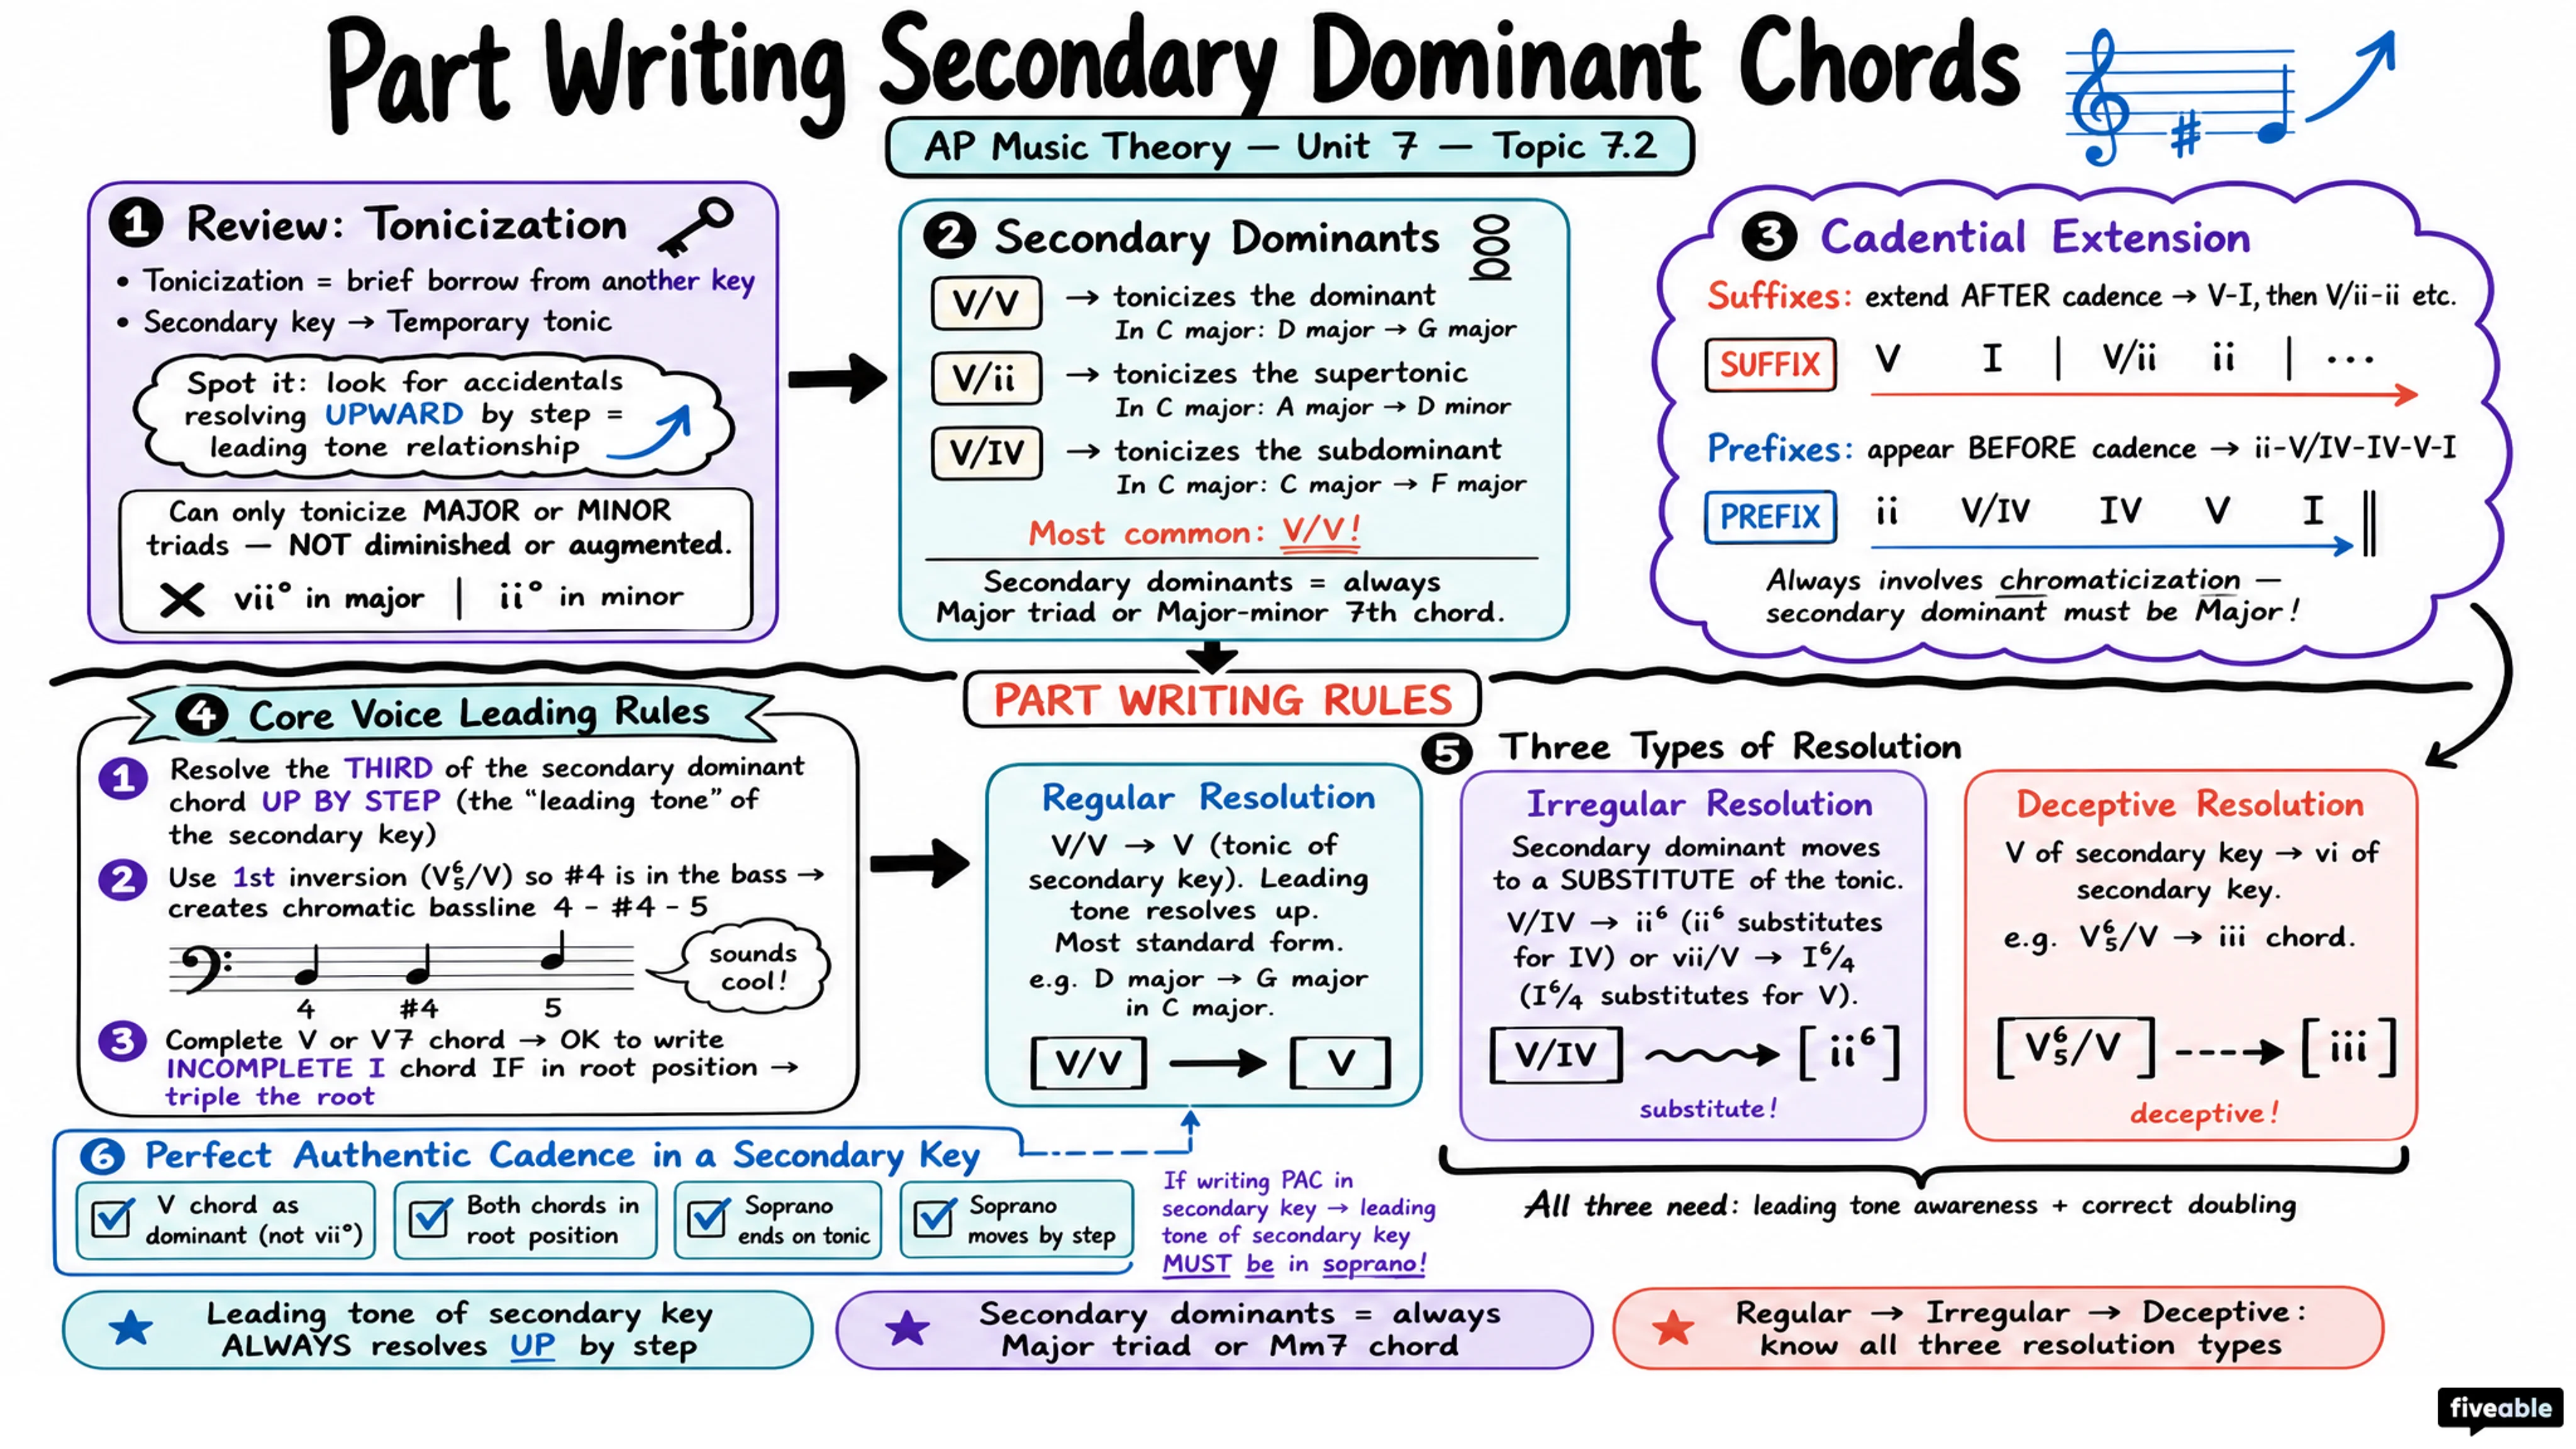 Part Writing Secondary Dominant Chords
AP Music Theory — Unit 7 — Topic 7.2
1 Review: Tonicization
• Tonicization = brief borrow from another key
• Secondary key → Temporary tonic
Spot it: look for accidentals
resolving UPWARD by step =
leading tone relationship
Can only tonicize MAJOR or MINOR
triads — NOT diminished or augmented.
✕ vii° in major | ii° in minor
2 Secondary Dominants
V/V → tonicizes the dominant
In C major: D major → G major
V/ii → tonicizes the supertonic
In C major: A major → D minor
V/IV → tonicizes the subdominant
In C major: C major → F major
Most common: V/V!
Secondary dominants = always
Major triad or Major-minor 7th chord.
3 Cadential Extension
Suffixes: extend AFTER cadence → V-I, then V/ii-ii etc.
SUFFIX V I | V/ii ii | ...
Prefixes: appear BEFORE cadence → ii-V/IV-IV-V-I
PREFIX ii V/IV IV V I
Always involves chromaticization —
secondary dominant must be Major!
PART WRITING RULES
4 Core Voice Leading Rules
1 Resolve the THIRD of the secondary dominant
chord UP BY STEP (the "leading tone" of
the secondary key)
2 Use 1st inversion (V⁶₅/V) so #4 is in the bass →
creates chromatic bassline 4 - #4 - 5
4 #4 5
sounds
cool!
3 Complete V or V7 chord → OK to write
INCOMPLETE I chord IF in root position →
triple the root
5 Three Types of Resolution
Regular Resolution
V/V → V (tonic of
secondary key). Leading
tone resolves up.
Most standard form.
e.g. D major → G major
in C major.
[V/V] → [V]
Irregular Resolution
Secondary dominant moves
to a SUBSTITUTE of the tonic.
V/IV → ii⁶ (ii⁶ substitutes
for IV) or vii/V → I⁶/₄
(I⁶/₄ substitutes for V).
[V/IV] → [ii⁶]
substitute!
Deceptive Resolution
V of secondary key → vi of
secondary key.
e.g. V⁶₅/V → iii chord.
[V⁶₅/V] → [iii]
deceptive!
All three need: leading tone awareness + correct doubling
6 Perfect Authentic Cadence in a Secondary Key
V chord as
dominant (not vii°)
Both chords in
root position
Soprano
ends on tonic
Soprano
moves by step
If writing PAC in
secondary key → leading
tone of secondary key
MUST be in soprano!
★ Leading tone of secondary key
ALWAYS resolves UP by step
★ Secondary dominants = always
Major triad or Mm7 chord
★ Regular → Irregular → Deceptive:
know all three resolution types
fiveable